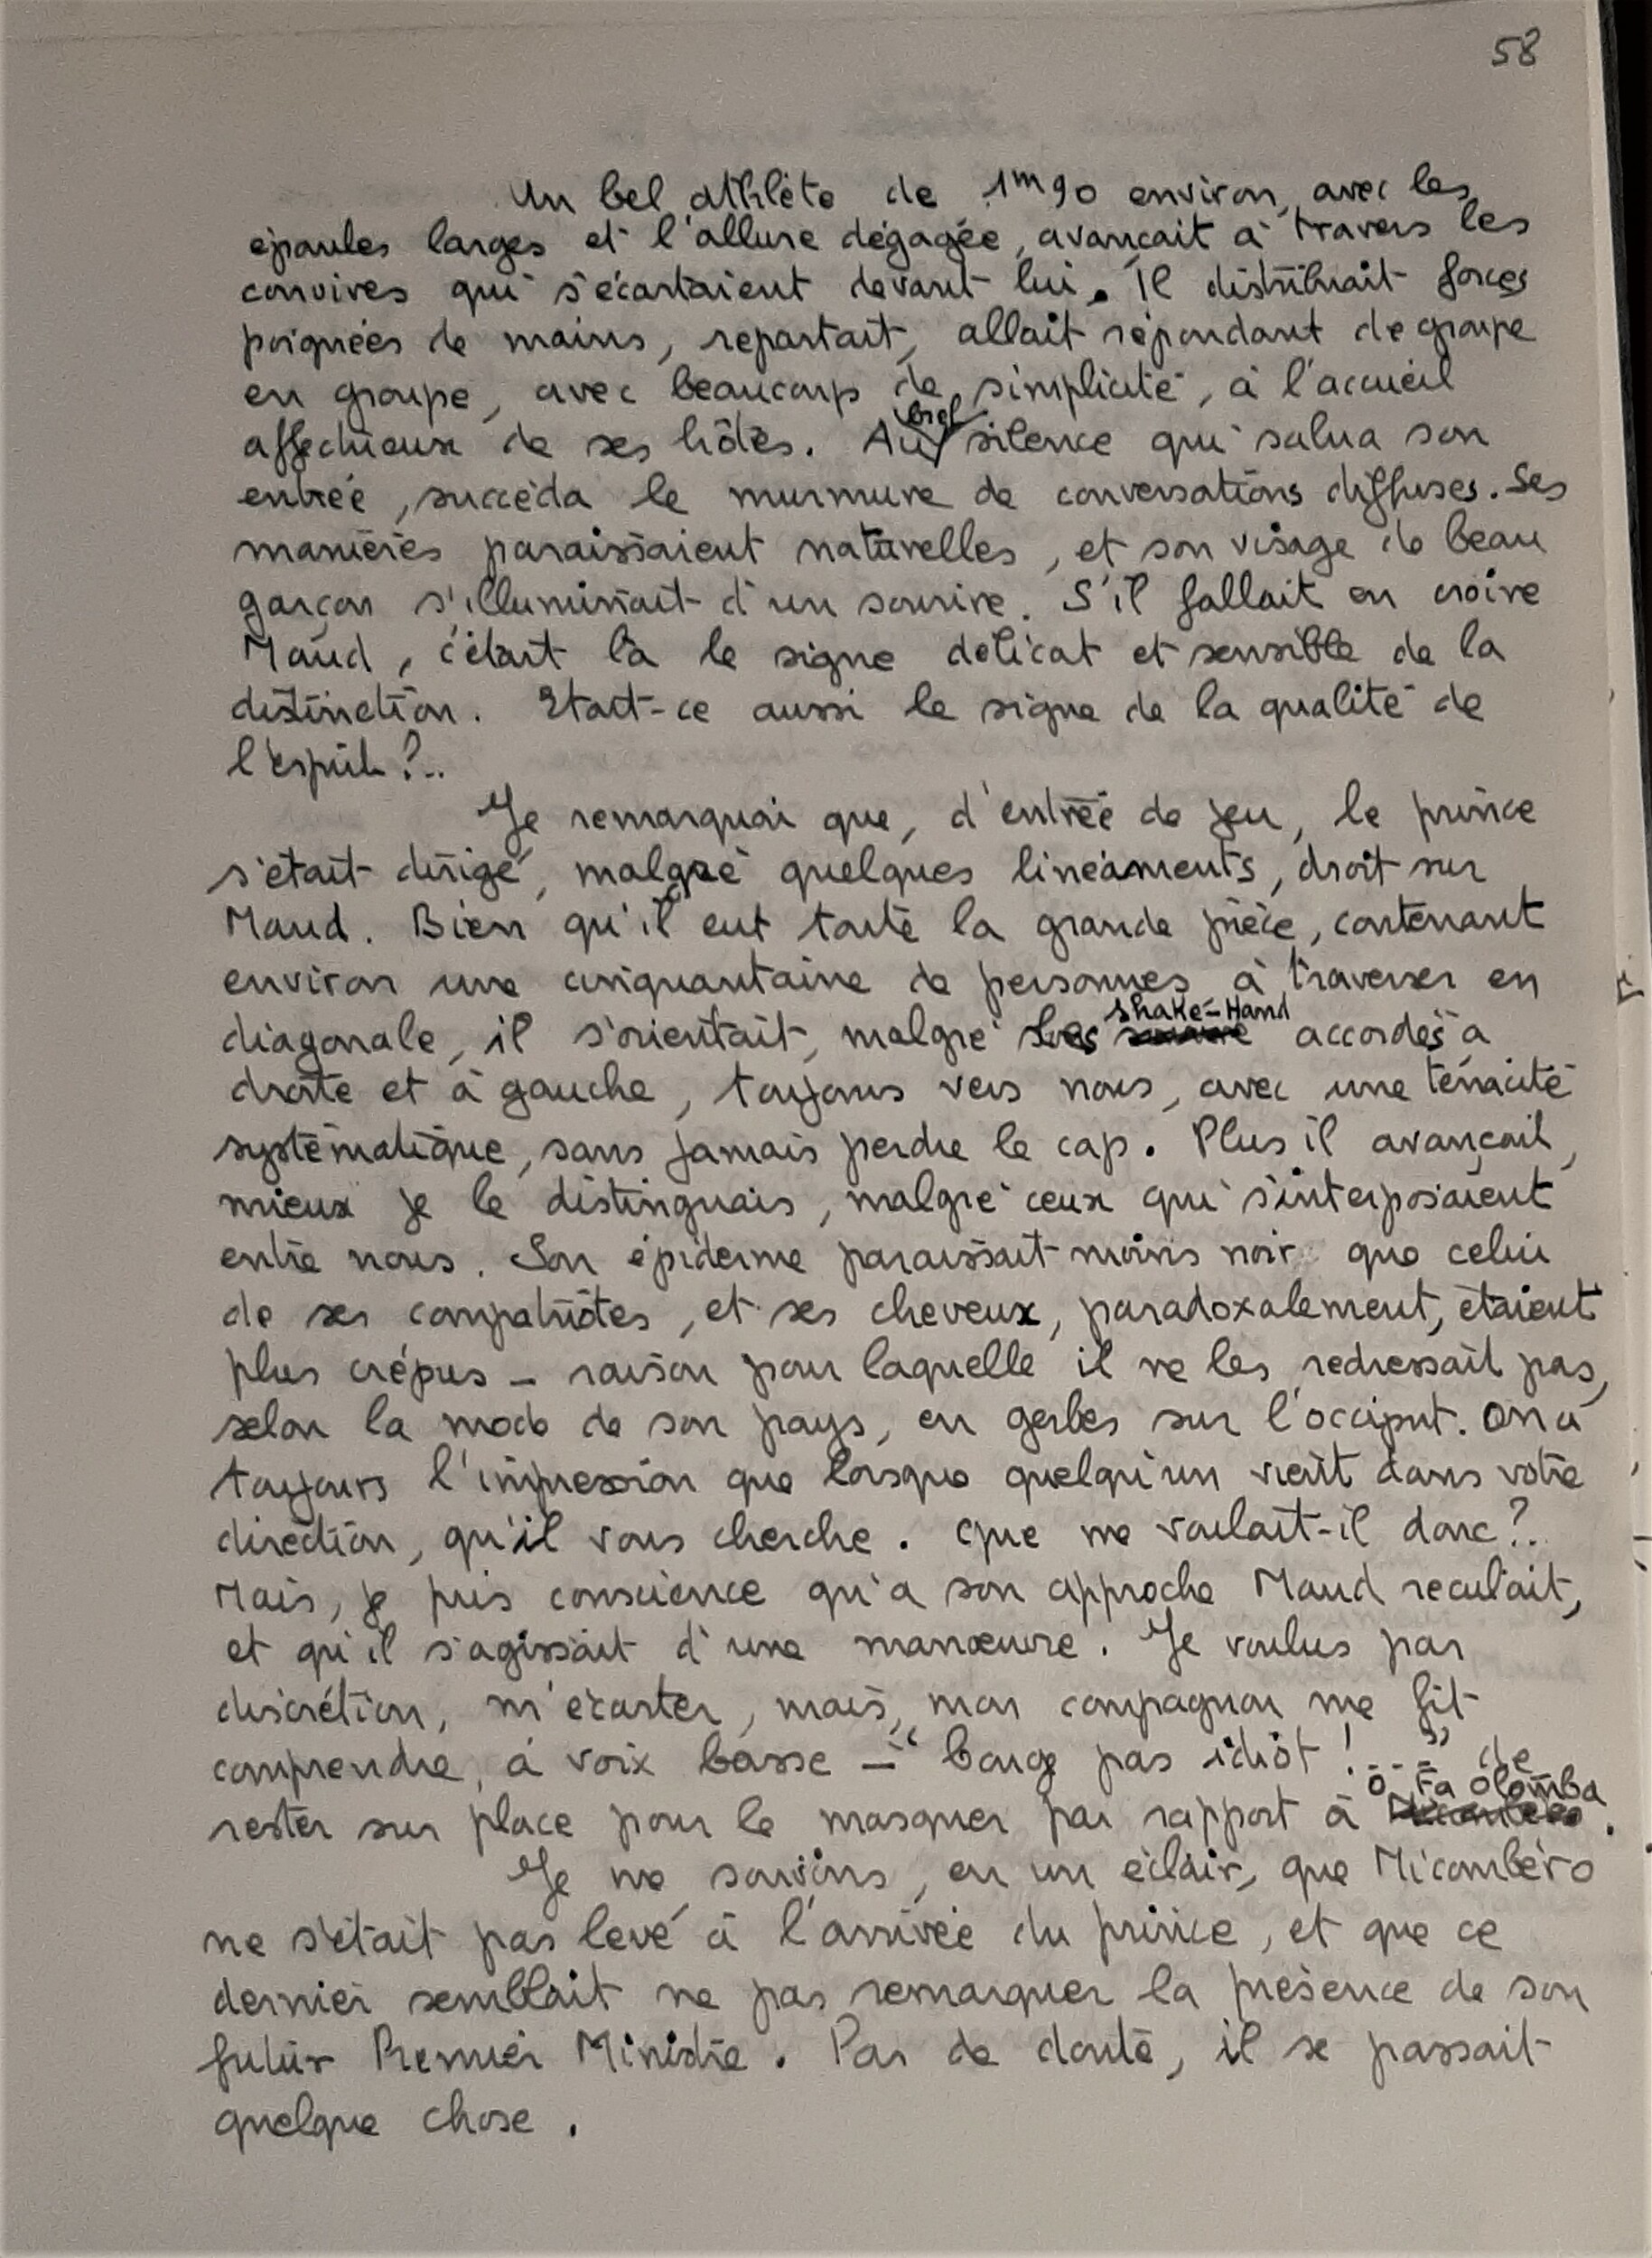 58
Un bel athlète de 1m90 environ, avec les
épaules larges et l'allure dégagée, avançait à travers les
convives qui s'écartaient devant lui. Il distribuait forces
poignées de mains, repartait, allait répondant de groupe
en groupe, avec beaucoup de simplicité, à l'accueil
affectueux de ses hôtes. Au bref silence qui salua son
entrée, succéda le murmure de conversations diffuses. Ses
manières paraissaient naturelles, et son visage de beau
garçon s'illuminait d'un sourire. S'il fallait en croire
Maud, c'était là le signe délicat et sensible de la
distinction. Etait-ce aussi le signe de la qualité de
l'esprit ?..
Je remarquai que, d'entrée de jeu, le prince
s'était dirigé, malgré quelques linéaments, droit sur
Maud. Bien qu'il eut toute la grande pièce, contenant
environ une cinquantaine de personnes à traverser en
diagonale, il s'orientait, malgré les shake-Hand accordés à
droite et à gauche, toujours vers nous, avec une ténacité
systématique, sans jamais perdre le cap. Plus il avançait,
mieux je le distinguais, malgré ceux qui s'interposaient
entre nous. Son épiderme paraissait moins noir que celui
de ses compatriotes, et ses cheveux, paradoxalement, étaient
plus crépus – raison pour laquelle il ne les redressait pas,
selon la mode de son pays, en gerbes sur l'occiput. On a
toujours l'impression que lorsque quelqu'un vient dans votre
direction, qu'il vous cherche. Que me voulait-il donc ?..
Mais, je pris conscience qu'à son approche Maud reculait,
et qu'il s'agissait d'une manœuvre. Je voulus par
discrétion, m'écarter, mais, mon compagnon me fit
comprendre, à voix basse – "bouge pas idiot !..." de
rester sur place pour le masquer par rapport à Ô Fa Olomba.
Je me souvins, en un éclair, que Micombéro
ne s'était pas levé à l'arrivée du prince, et que ce
dernier semblait ne pas remarquer la présence de son
futur Premier Ministre. Pas de doute, il se passait
quelque chose.